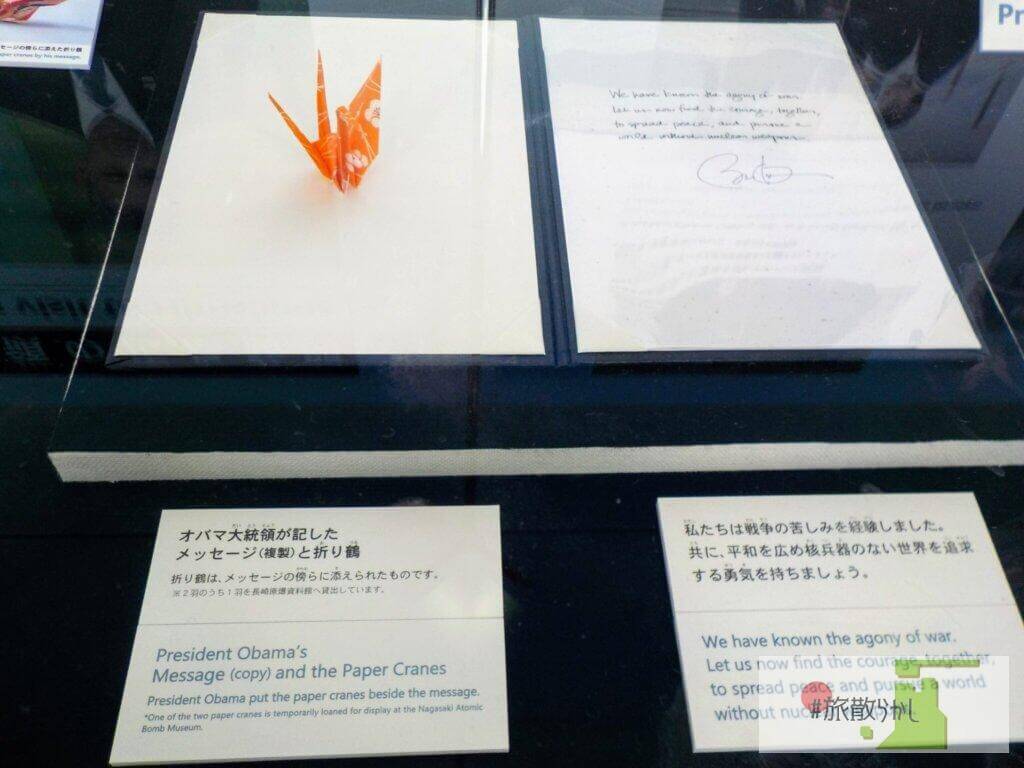 セージの傍らに添えた折り鶴
aper cranes by his message.
Pr
We have known the agony of war.
Let us now find the courage, together,
to spread peace, and pursue a
world without nuclear weapons.
オバマ大統領が記した
メッセージ(複製)と折り鶴
折り鶴は、メッセージの傍らに添えられたものです。
※2羽のうち1羽を長崎原爆資料館へ貸出しています。
President Obama's
Message (copy) and the Paper Cranes
President Obama put the paper cranes beside the message.
*One of the two paper cranes is temporarily loaned for display at the Nagasaki Atomic
Bomb Museum.
私たちは戦争の苦しみを経験しました。
共に、平和を広め核兵器のない世界を追求
する勇気を持ちましょう。
We have known the agony of war.
Let us now find the courage, together,
to spread peace and pursue a world
without
#旅散らかし